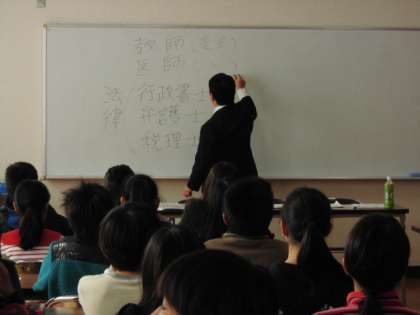 教師(先生)
医師(
法律 行政書士
弁護士
税理士